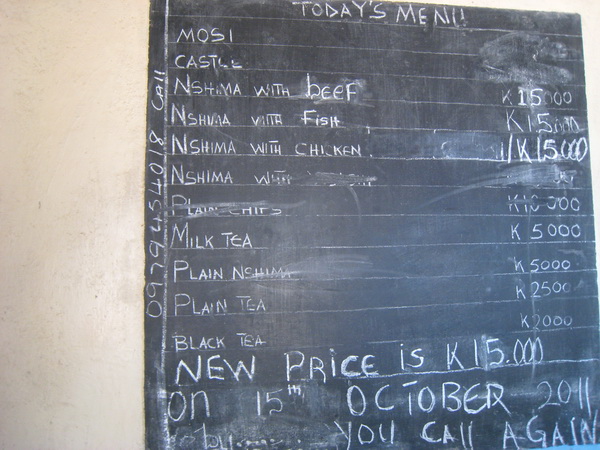 TODAY'S MENU!
MOSI
CASTLE
NSHIMA WITH beeF K15000
NSHIMA WITH FisH K15000
NSHIMA WITH CHICKEN. K15.000
NSHIMA WITH
PLAIN CHIPS K10000
MILK TEA K 5000
PLAIN NSHIMA K5000
PLAIN TEA K 2500
BLACK TEA K 2000
NEW PRICE is K15.000
On 15th OCTOBER 2011
YOU CAll AGAIN
0979454018 CAll